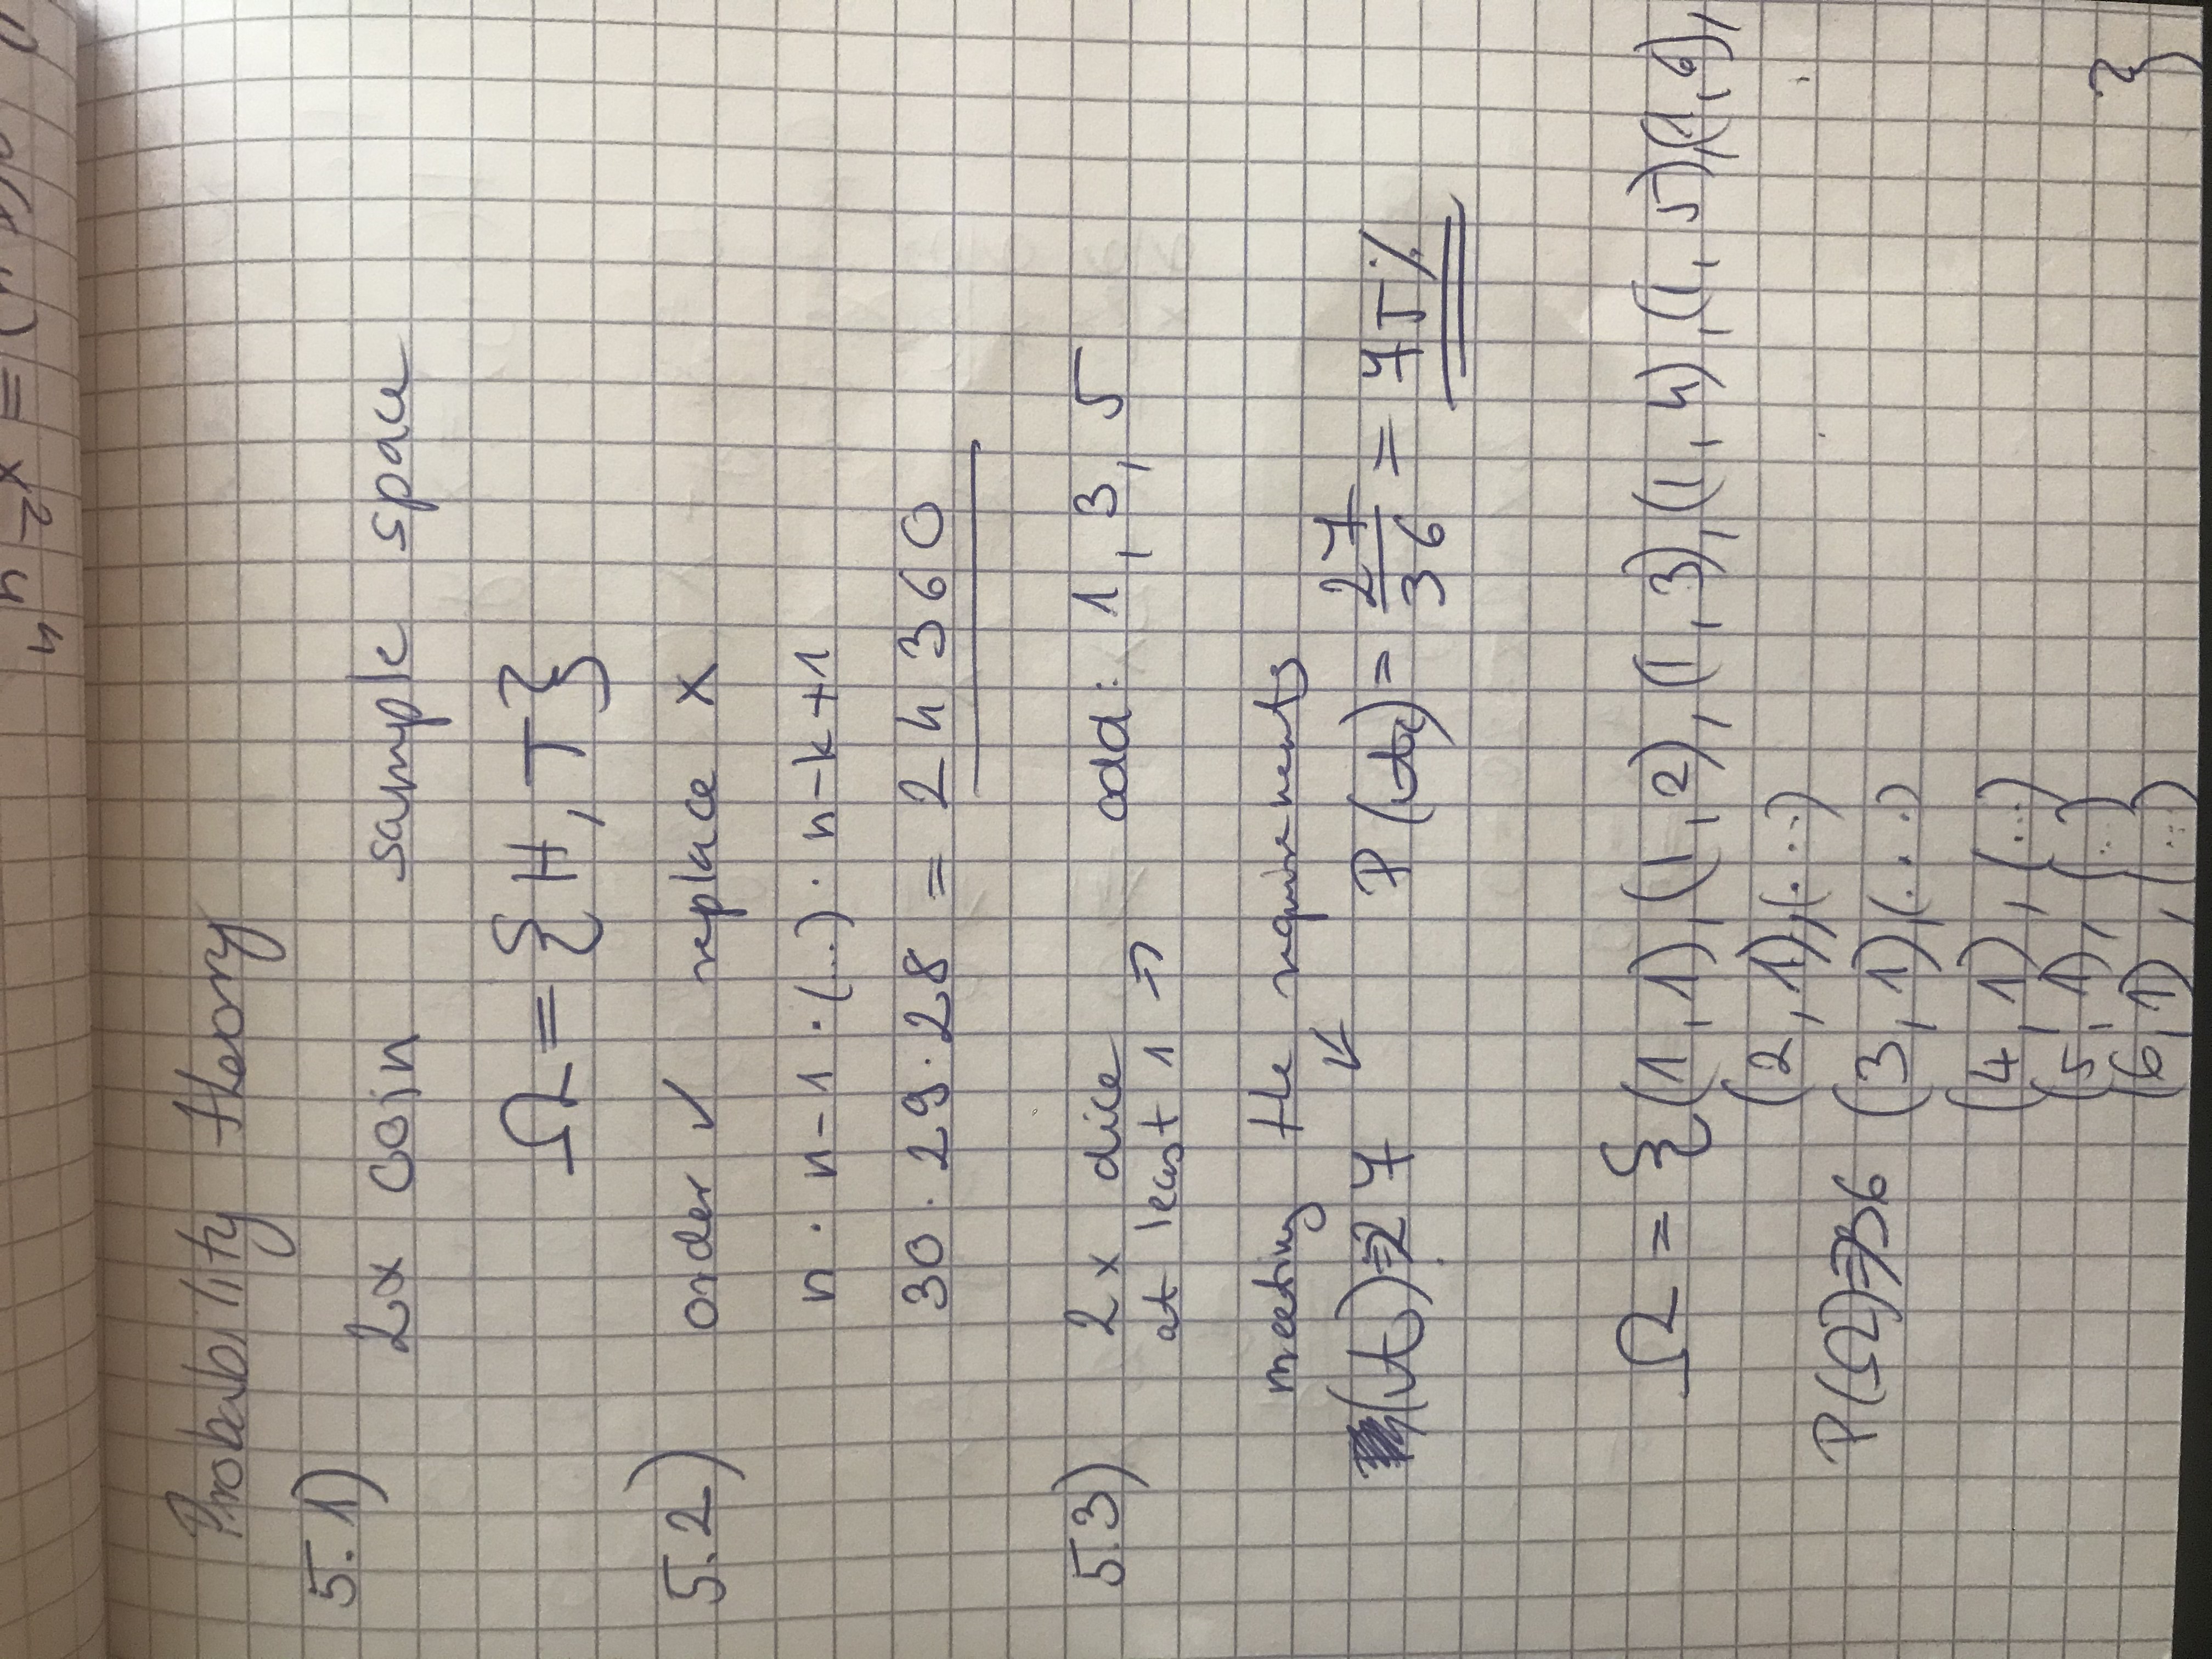 Probability theory
5.1)
2x coin sample space
Ω = {H, T}
5.2) order ✓ replace x
n · n-1 · (...) · n-k+1
30 · 29 · 28 = 24 360
5.3) 2x dice odd: 1, 3, 5
at least 1 →
meeting the requirements
(A) ⇒ 27 ↙ P(A) = 27/36 = 75%
Ω = {(1,1), (1,2), (1,3), (1,4), (1,5), (1,6),
(2,1), (...)
P(Ω) ⇒ 36 (3,1), (...)
(4,1), (...)
(5,1), (...)
(6,1), (...) }